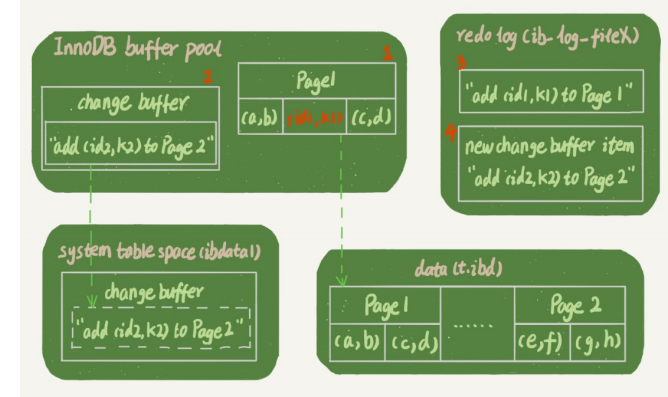 InnoDB buffer pool
1
change buffer
"add (id2, k2) to Page 2"
1
Page1
(a,b) (id1, k1) (c,d)
redo log (ib-log-fileX)
3
"add (id1, k1) to Page 1"
4
new change buffer item
"add (id2, k2) to Page 2"
system table space (ibdata1)
change buffer
"add (id2, k2) to Page 2"
data (t.ibd)
Page 1 ...... Page 2
(a,b) (c,d) (e,f) (g,h)